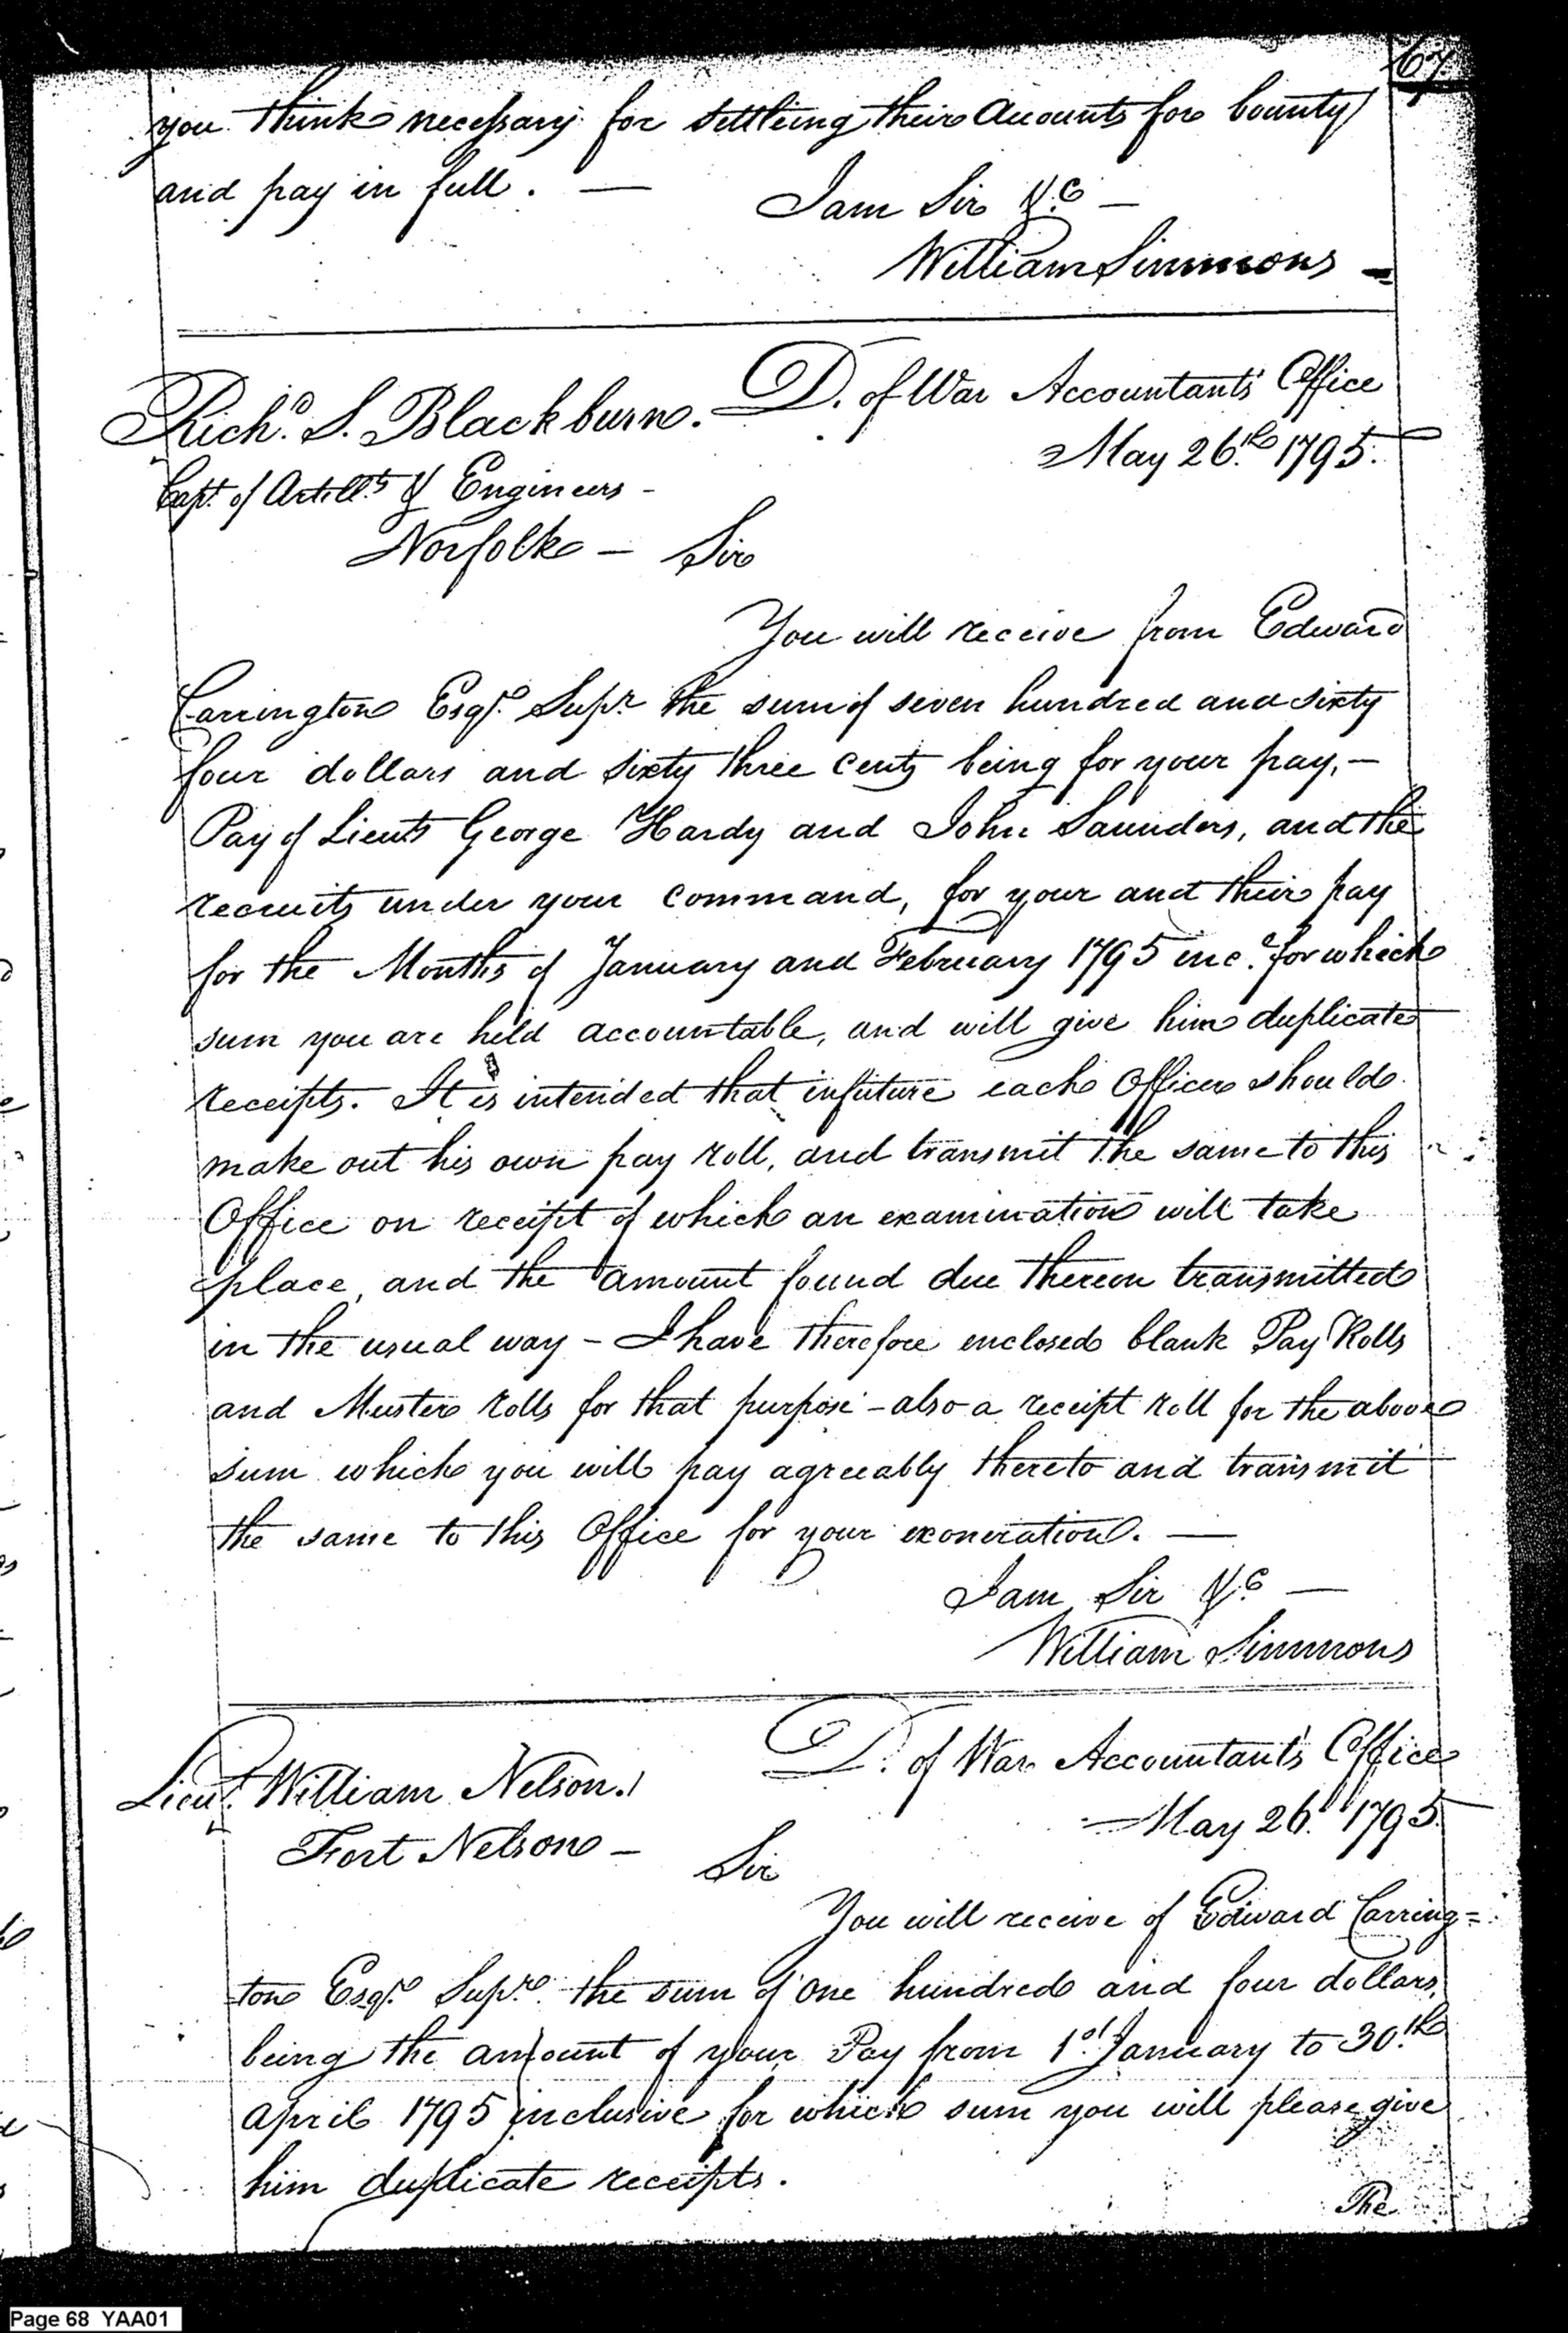 67
you think necessary for settleing their Accounts for bounty
and pay in full. —
I am Sir &c —
William Simmons —
Richd. S. Blackburn.
D. of War Accountants Office
May 26th 1795.
Capt. of Artilly & Engineers -
Norfolk — Sir
You will receive from Edward
Carrington Esqr. Supr. the sum of seven hundred and sixty
four dollars and sixty three cents being for your pay, —
Pay of Lieuts George Hardy and John Saunders, and the
recruits under your command, for your and their pay
for the Months of January and February 1795 ince. for which
sum you are held accountable, and will give him duplicate
receipts. It is intended that in future each Officer should
make out his own pay roll, and transmit the same to this
Office on receipt of which an examination will take
place, and the amount found due thereon transmitted
in the usual way - I have therefore enclosed blank Pay Rolls
and Muster rolls for that purpose - also a receipt roll for the above
sum which you will pay agreeably thereto and transmit
the same to this Office for your exoneration. —
I am Sir &c —
William Simmons
Lieut. William Nelson.
D. of War Accountant's Office
May 26th 1795.
Fort Nelson — Sir
You will receive of Edward Carring=
ton Esqr. Supr. the sum of one hundred and four dollars,
being the amount of your Pay from 1st January to 30th
April 1795 inclusive for which sum you will please give
him duplicate receipts.
The
Page 68 YAA01